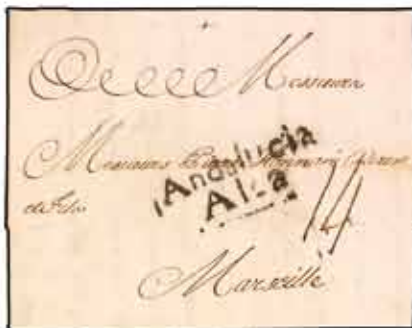 Messieurs
Messieurs
et Fils
Andalucia
Alta
14
Marseille